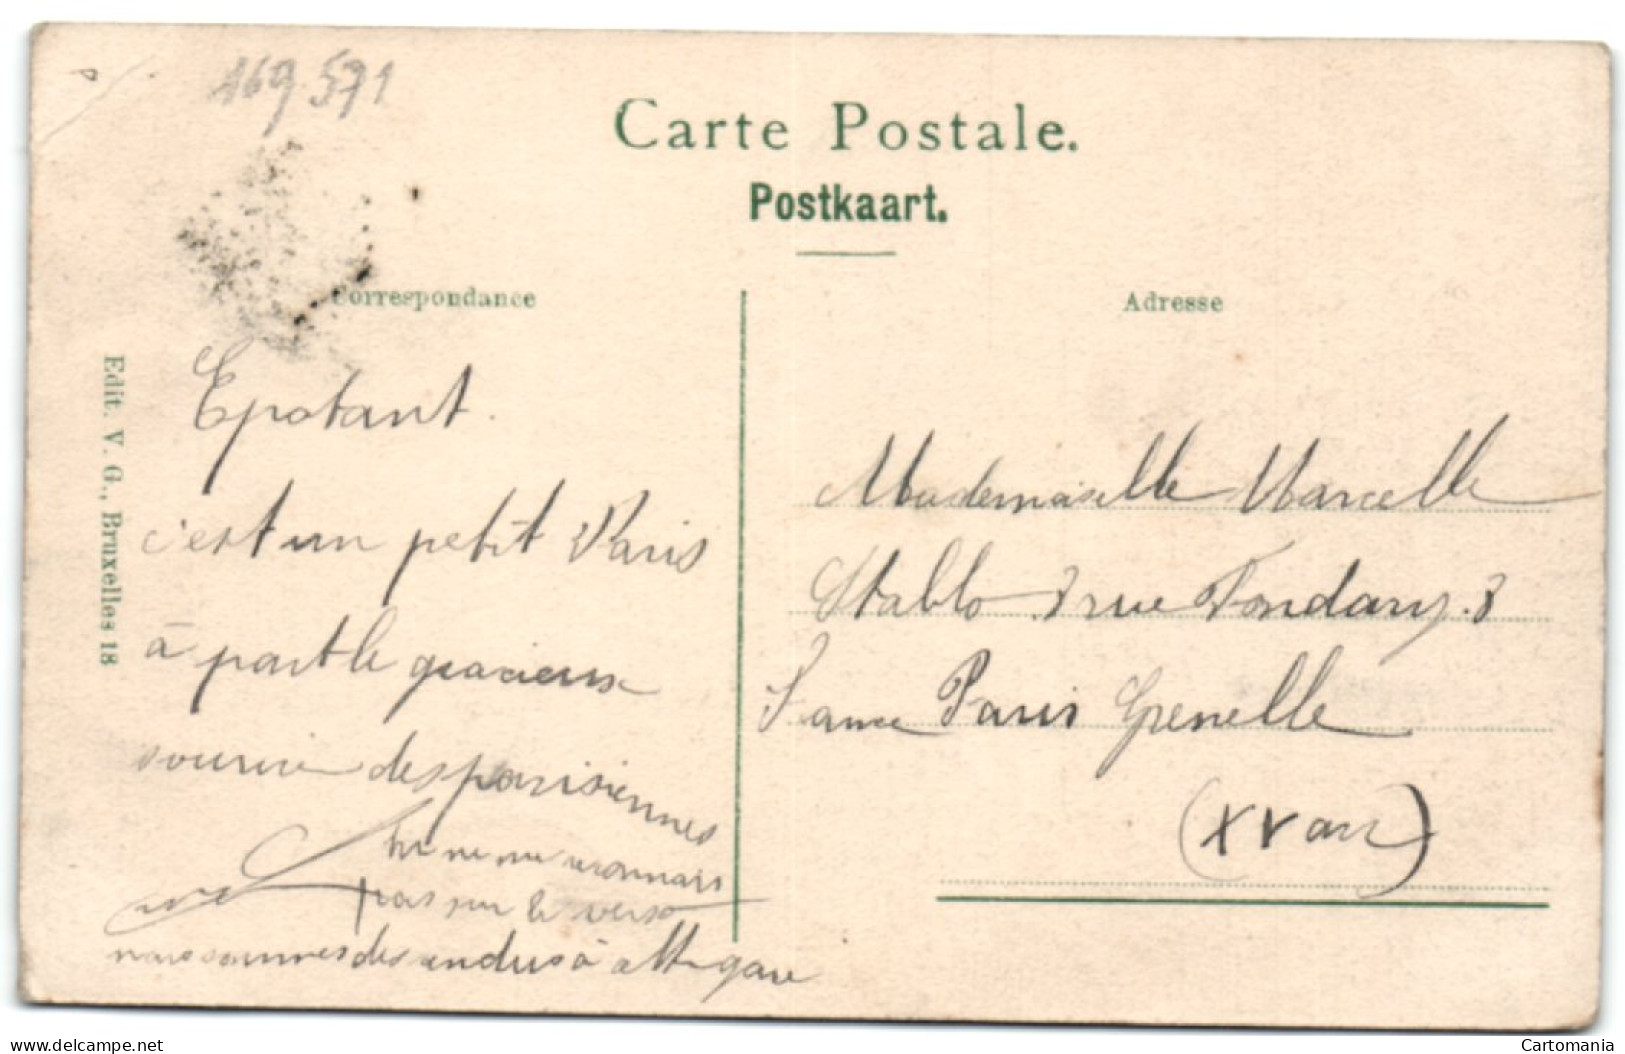 169 571
Carte Postale.
Postkaart.
Correspondance
Adresse
Edit. V. G., Bruxelles 18
Epatant.
c'est un petit Paris
à part le gracieux
sourire des parisiennes
tu ne me reconnais
pas sur le verso
nous sommes descendus à cette gare
Mademoiselle Marcelle
Stablo 8 rue Fondary. 8
France Paris Grenelle
(XV arr)
delcampe.net
Cartomania